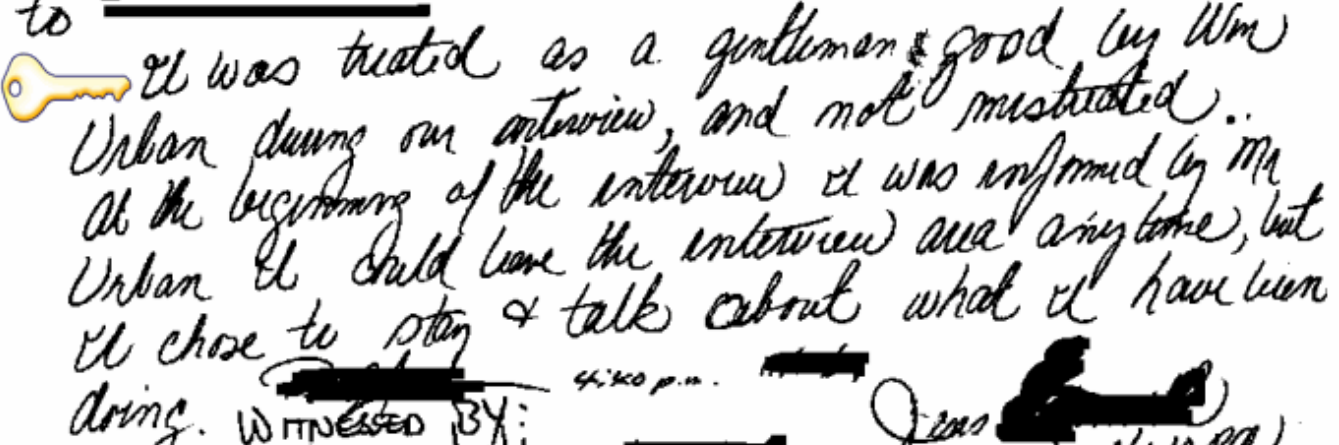 to
I was treated as a gentleman & good by Wm
Urban during our interview, and not mistreated..
At the beginning of the interview I was informed by Mr
Urban I could leave the interview area anytime, but
I chose to stay & talk about what I have been
doing. WITNESSED BY:
p.m.